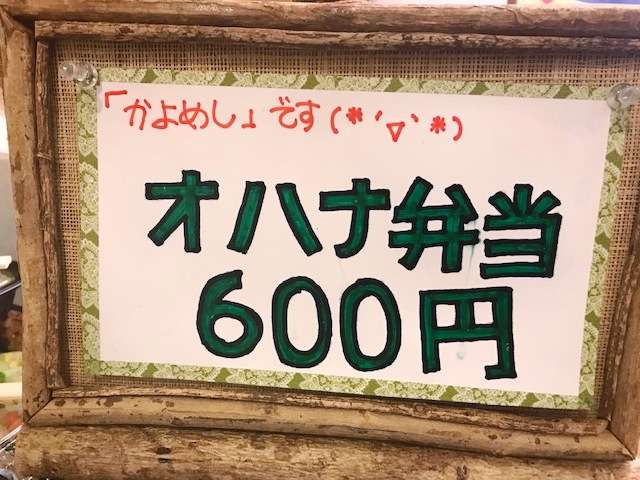 「かよめし」です(*´▽`*)
オハナ弁当
600円